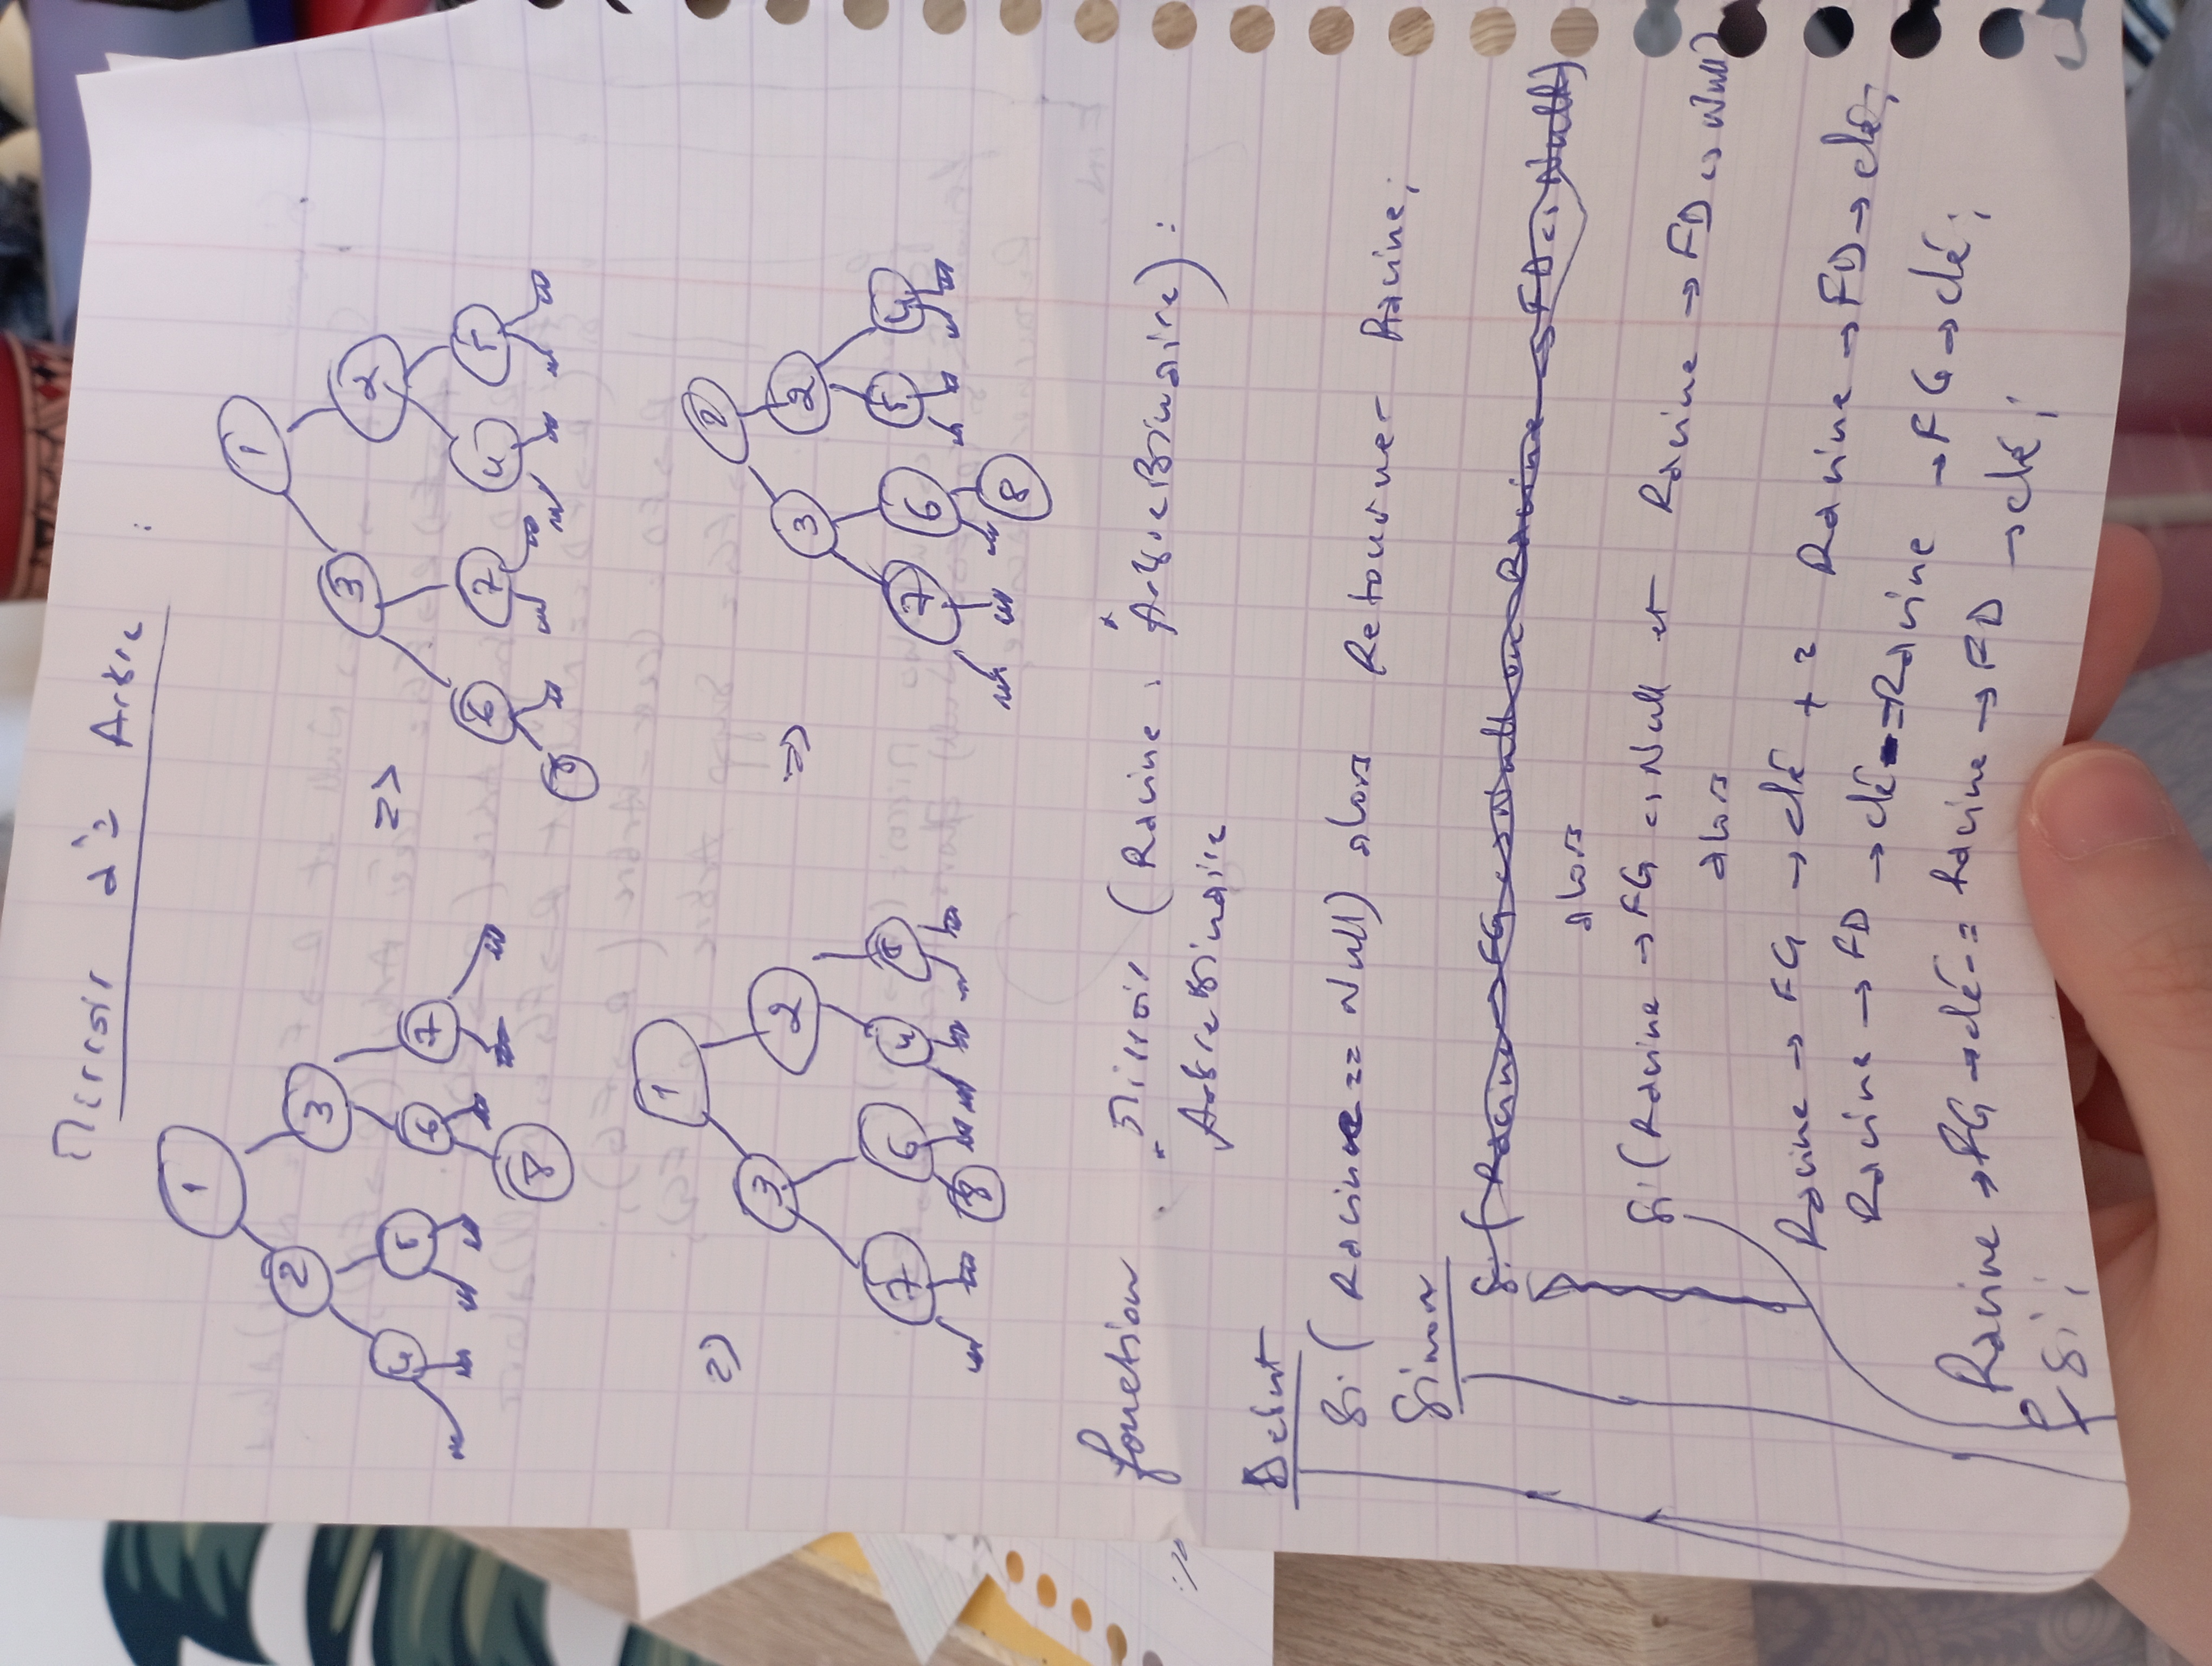 Mirroir d'= Arbre :
1
1
2 3
3 2
4 5 6 7
=>
6 7 4 5
8
8
=>
1
3 2
7 6 4 5
8
=>
3 2
7 6 5 4
8
fonction Mirroir (Racine : ArbreBinaire) :
ArbreBinaire
Debut
Si (Racine == Null) alors Retourner Racine;
Sinon
Si (Racine → FG <> Null ou Racine → FD <> Null)
alors
Si (Racine → FG <> Null et Racine → FD <> Null)
alors
Racine → FG → clé += Racine → FD → clé;
Racine → FD → clé -= Racine → FG → clé;
Racine → FG → clé -= Racine → FD → clé;
FSi;